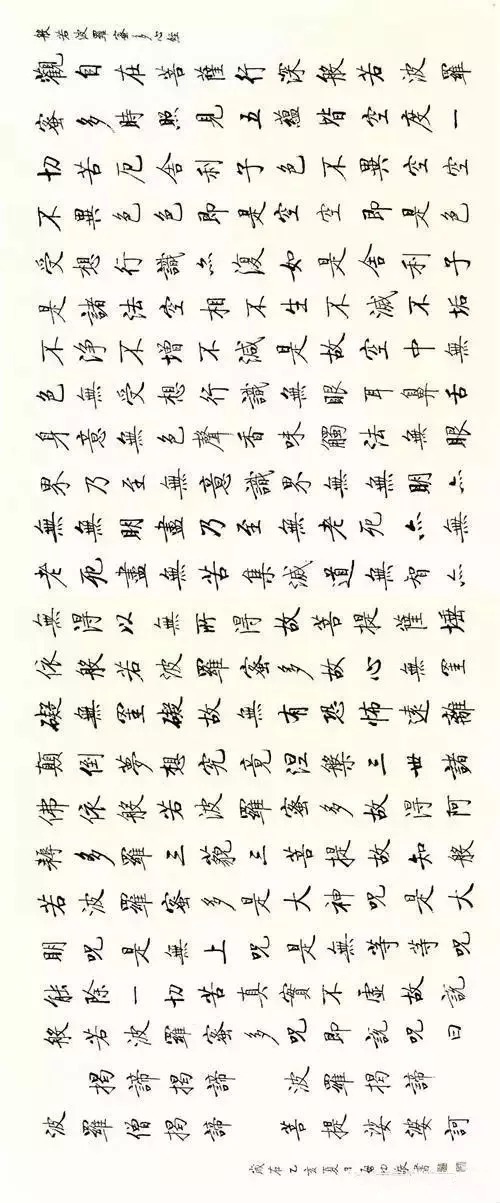 般若波羅蜜多心經
觀自在菩薩行深般若波羅
蜜多時照見五蘊皆空度一
切苦厄舍利子色不異空空
不異色色即是空空即是色
受想行識亦復如是舍利子
是諸法空相不生不滅不垢
不淨不增不減是故空中無
色無受想行識無眼耳鼻舌
身意無色聲香味觸法無眼
界乃至無意識界無無明亦
無無明盡乃至無老死亦無
老死盡無苦集滅道無智亦
無得以無所得故菩提薩埵
依般若波羅蜜多故心無罣
礙無罣礙故無有恐怖遠離
顛倒夢想究竟涅槃三世諸
佛依般若波羅蜜多故得阿
耨多羅三藐三菩提故知般
若波羅蜜多是大神咒是大
明咒是無上咒是無等等咒
能除一切苦真實不虛故說
般若波羅蜜多咒即說咒曰
揭諦揭諦 波羅揭諦
波羅僧揭諦 菩提娑婆訶
歲在乙亥夏日啟功敬書